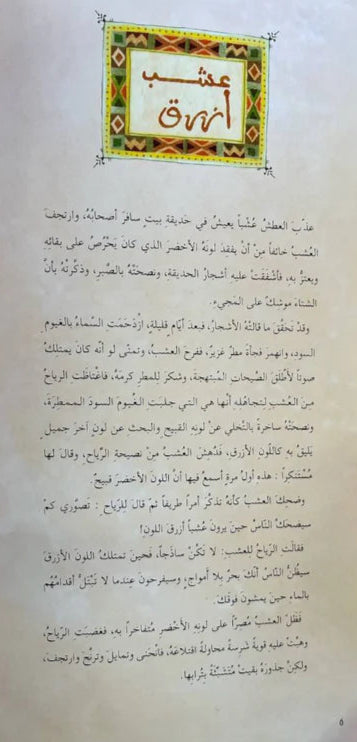 عشب
أزرق
عذّبَ العطشُ عُشْباً يعيشُ في حَديقةِ بيتٍ سافرَ أصحابُهُ، وارتجفَ
العُشبُ خائفاً مِنْ أنْ يفقدَ لونَهُ الأخضرَ الذي كانَ يَحْرُصُ على بقائِهِ
ويعتزُّ بهِ، فأشْفَقَتْ عليهِ أشجارُ الحديقةِ، ونصحَتْهُ بالصَّبرِ، وذكَّرتْهُ بأنَّ
الشتاءَ موشِكٌ على المَجيءِ.
وقدْ تحقّقَ ما قالتْهُ الأشجارُ، فبعدَ أيّامٍ قليلةٍ، ازْدَحَمَتِ السَّماءُ بالغيومِ
السودِ، وانهمرَ فجأةً مطرٌ غزيرٌ، ففرحَ العشبُ، وتمنّى لو أنّه كانَ يمتلكُ
صوتاً لأطْلقَ الصَّيحاتِ المُبتهجةَ، وشكرَ للمطرِ كرمَهُ، فاغْتاظَت الرياحُ
مِنَ العُشبِ لتجاهُلِهِ أنّها هي التي جلبَتِ الغُيومَ السودَ الممطِرَةَ،
ونصحَتْهُ ساخرةً بالتَّخلّي عنْ لونِهِ القبيحِ والبحثِ عن لونٍ آخرَ جميلٍ
يَليقُ بهِ كاللّونِ الأزرقِ، فدُهِشَ العُشبُ مِنْ نصيحةِ الرِّياحِ، وقالَ لها
مُسْتَنكراً : هذه أولُ مرةٍ أسمعُ فيها أنّ اللونَ الأخضرَ قبيحٌ.
وضحِكَ العشبُ كأنّهُ تذكّرَ أمراً طريفاً ثمّ قالَ للرِّياحِ : تَصَوَّري كمْ
سيضحكُ النّاسُ حينَ يرونَ عُشباً أزرقَ اللونِ!
فقالَتِ الرِّياحُ للعشبِ: لا تكُنْ ساذَجاً، فَحينَ تمتلكُ اللونَ الأزرقَ
سيظُنُّ النّاسُ أنّكَ بحرٌ بلا أمواجٍ، وسيفرحونَ عِندما لا تَبْتَلُّ أقدامُهُم
بالماءِ حينَ يمشونَ فوقَكَ.
فَظلَّ العشبُ مُصِرّاً على لونِهِ الأخْضرِ مُتفاخراً بهِ، فغضبَتِ الرِّياحُ،
وهبَّتْ عليهِ قويةً شرسةً محاولةً اقتلاعَهُ، فانْحَنى وتمايلَ وترنَّحَ وارتجفَ،
ولكنّ جذورَهُ بقيتْ مُتَشَبِّثَةً بتُرابِها.
٥